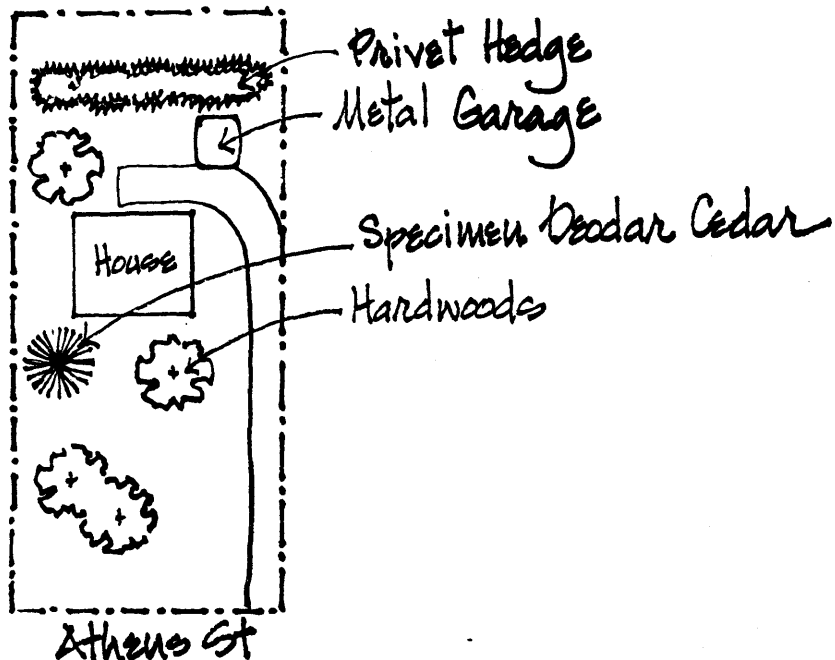 Privet Hedge
Metal Garage
Specimen Deodar Cedar
House
Hardwoods
Athens St